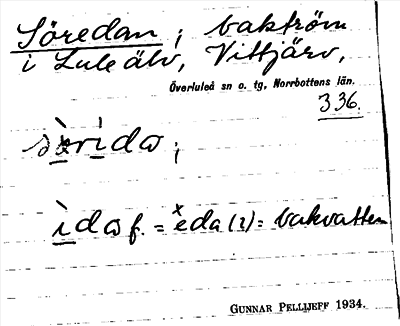 Söredan; bakström
i Lule älv, Vittjärv,
Överluleå sn o. tg, Norrbottens län.
336.
ìdω f. = ẋeda (2) = bakvatten
GUNNAR PELLIJEFF 1934.